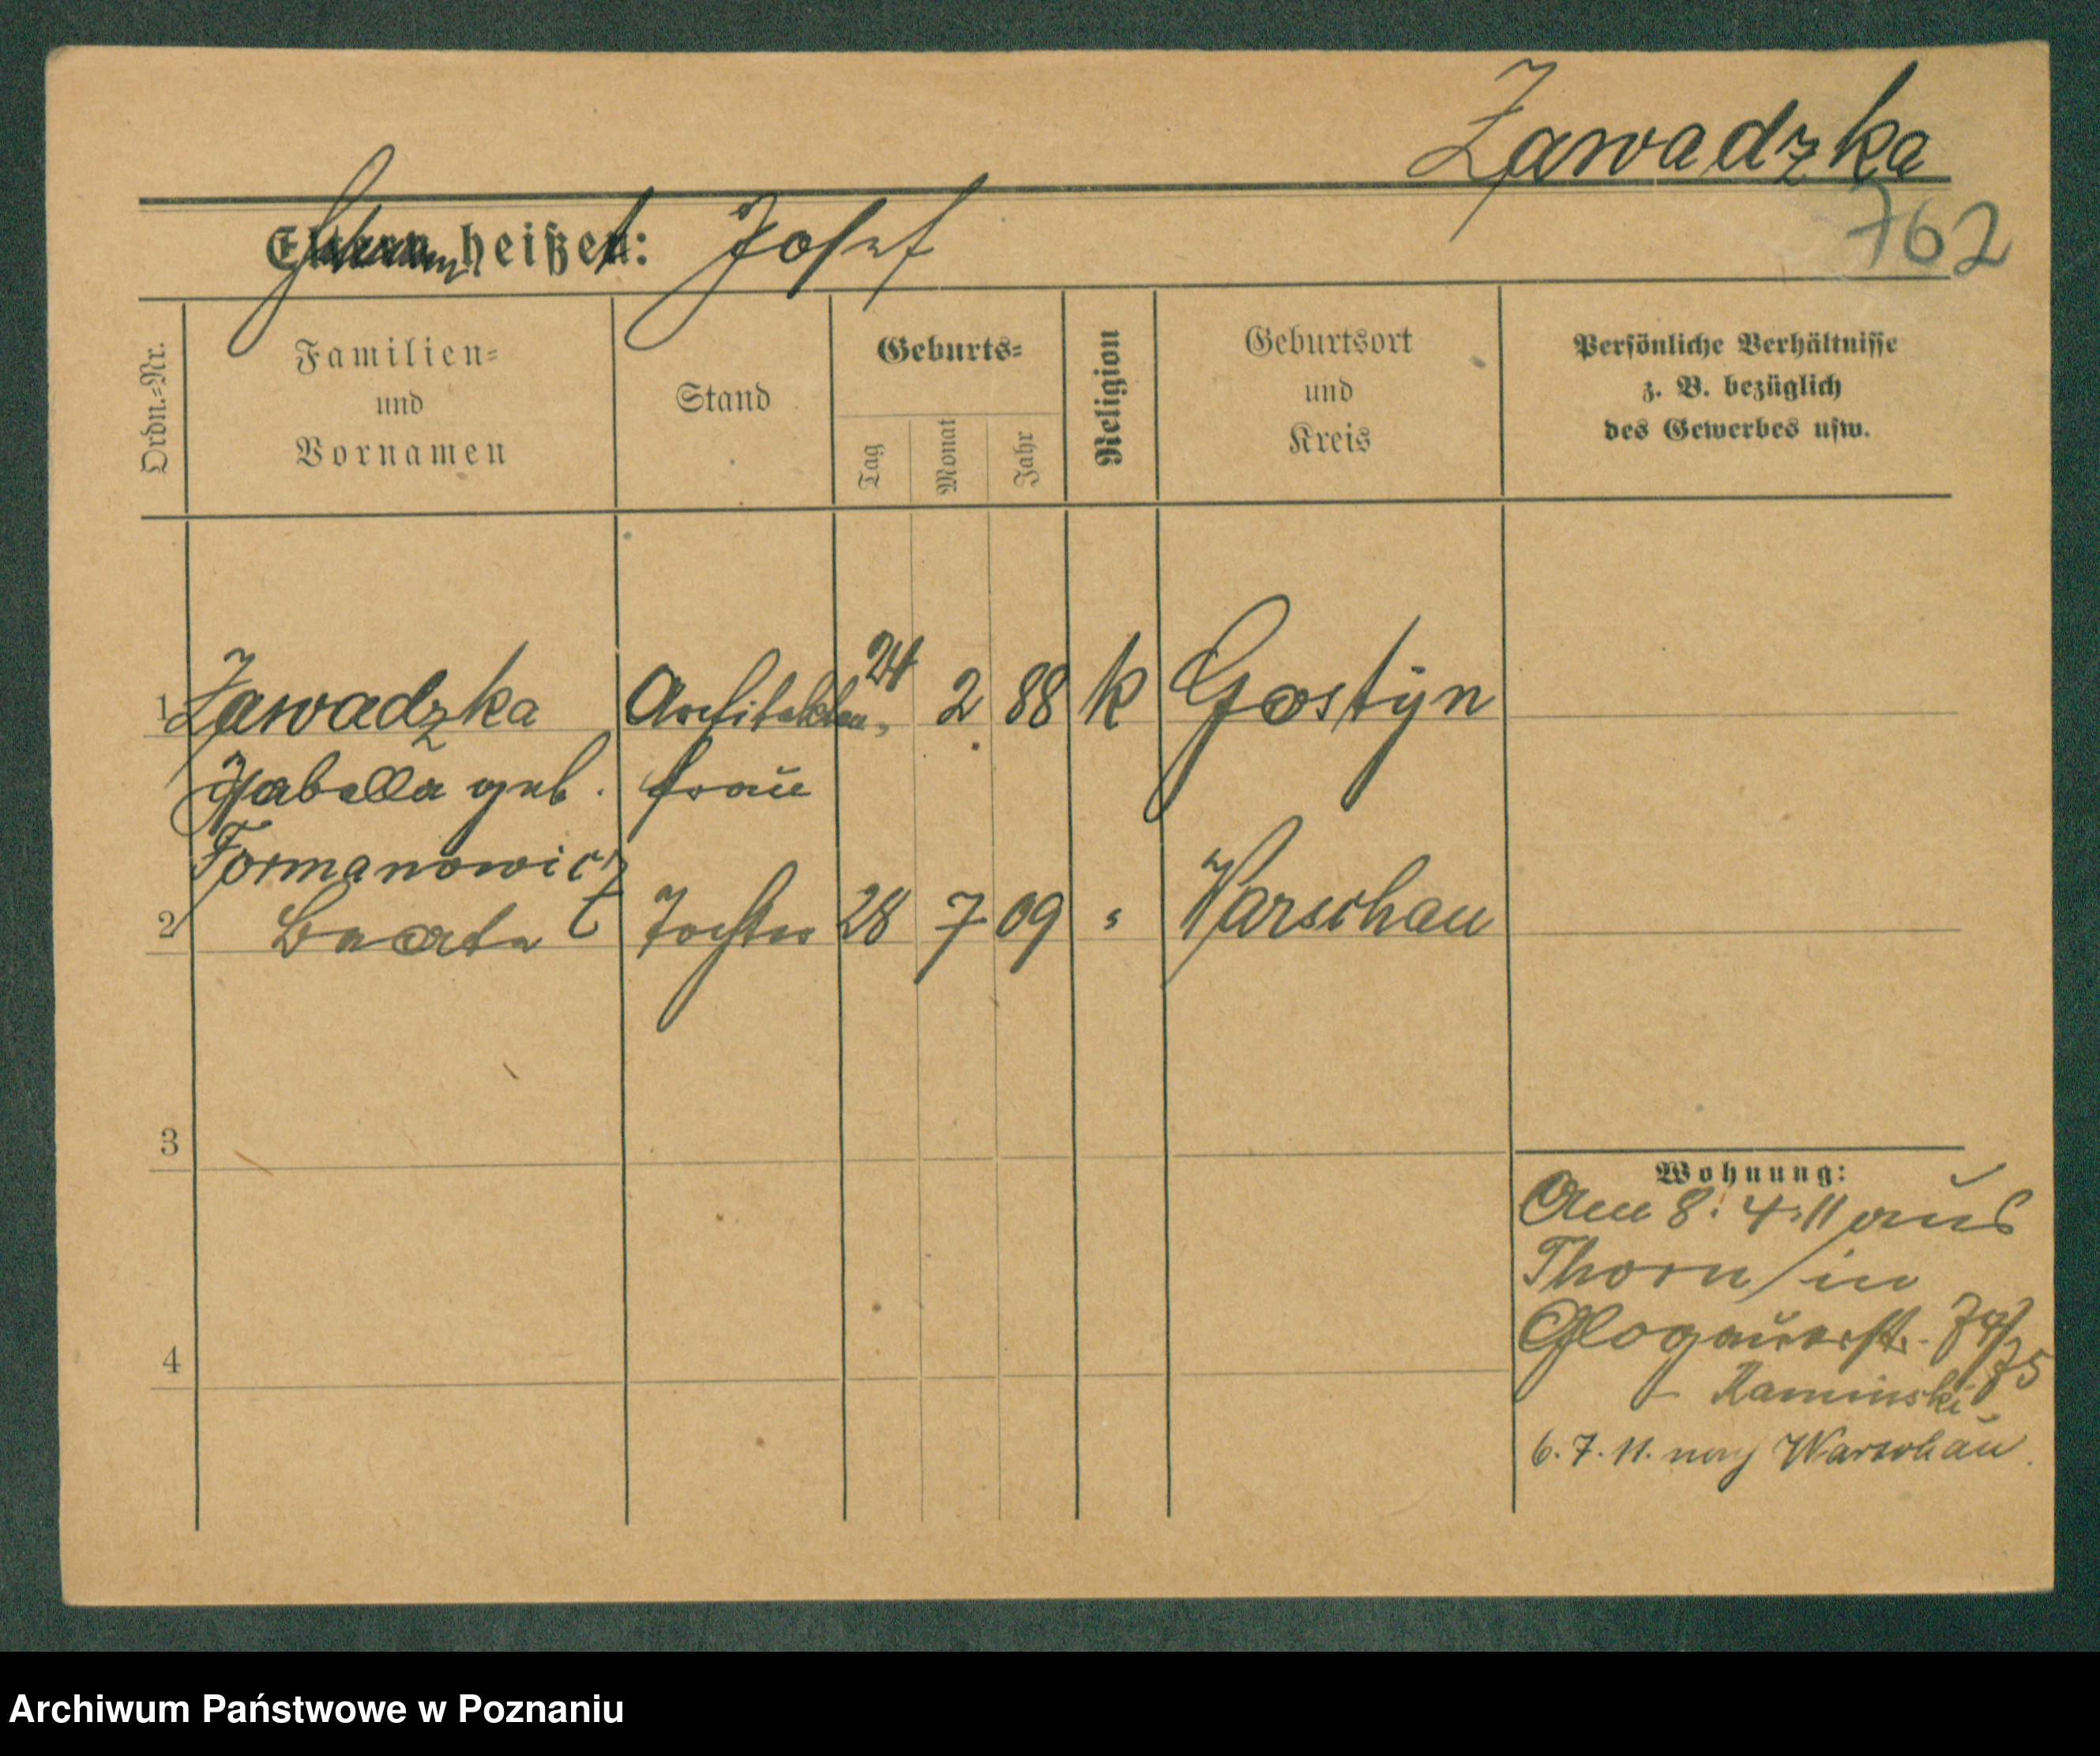 Zawadzka
762
Eltern heißen: Josef
Ordn.=Nr.
Familien=
und
Vornamen
Stand
Geburts=
Tag
Monat
Jahr
Religion
Geburtsort
und
Kreis
Persönliche Verhältnisse
z. B. bezüglich
des Gewerbes usw.
1 Zawadzka Architekten- 24 2 88 k Gostÿn
Isabella geb. frau
Formanowicz
2 Beate Tochter 28 7 09 " Warschau
3
4
Wohnung:
Am 8. 4. 11 aus
Thorn / in
Glogauerstr. 74/75
- Kaminski -
6. 7. 11. nach Warschau.
Archiwum Państwowe w Poznaniu